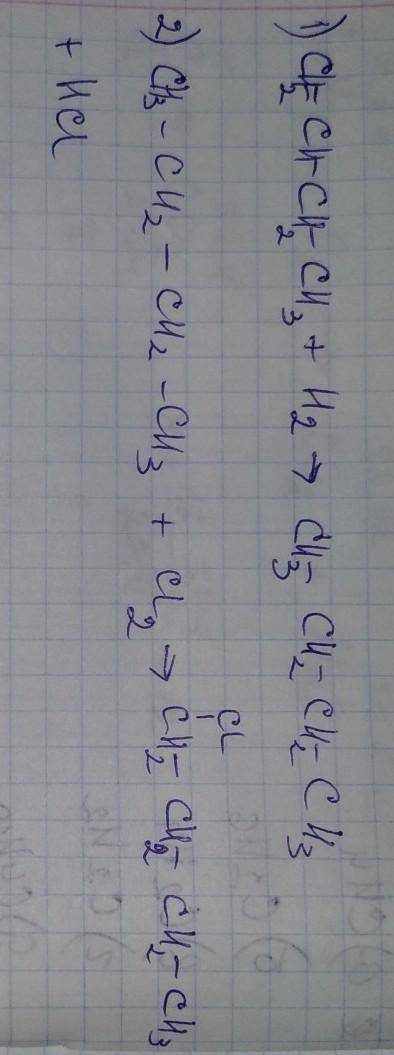 1) CH2=CH-CH2-CH3 + H2 → CH3-CH2-CH2-CH3
Cl
2) CH3-CH2-CH2-CH3 + Cl2 → CH2-CH2-CH2-CH3
+ HCl